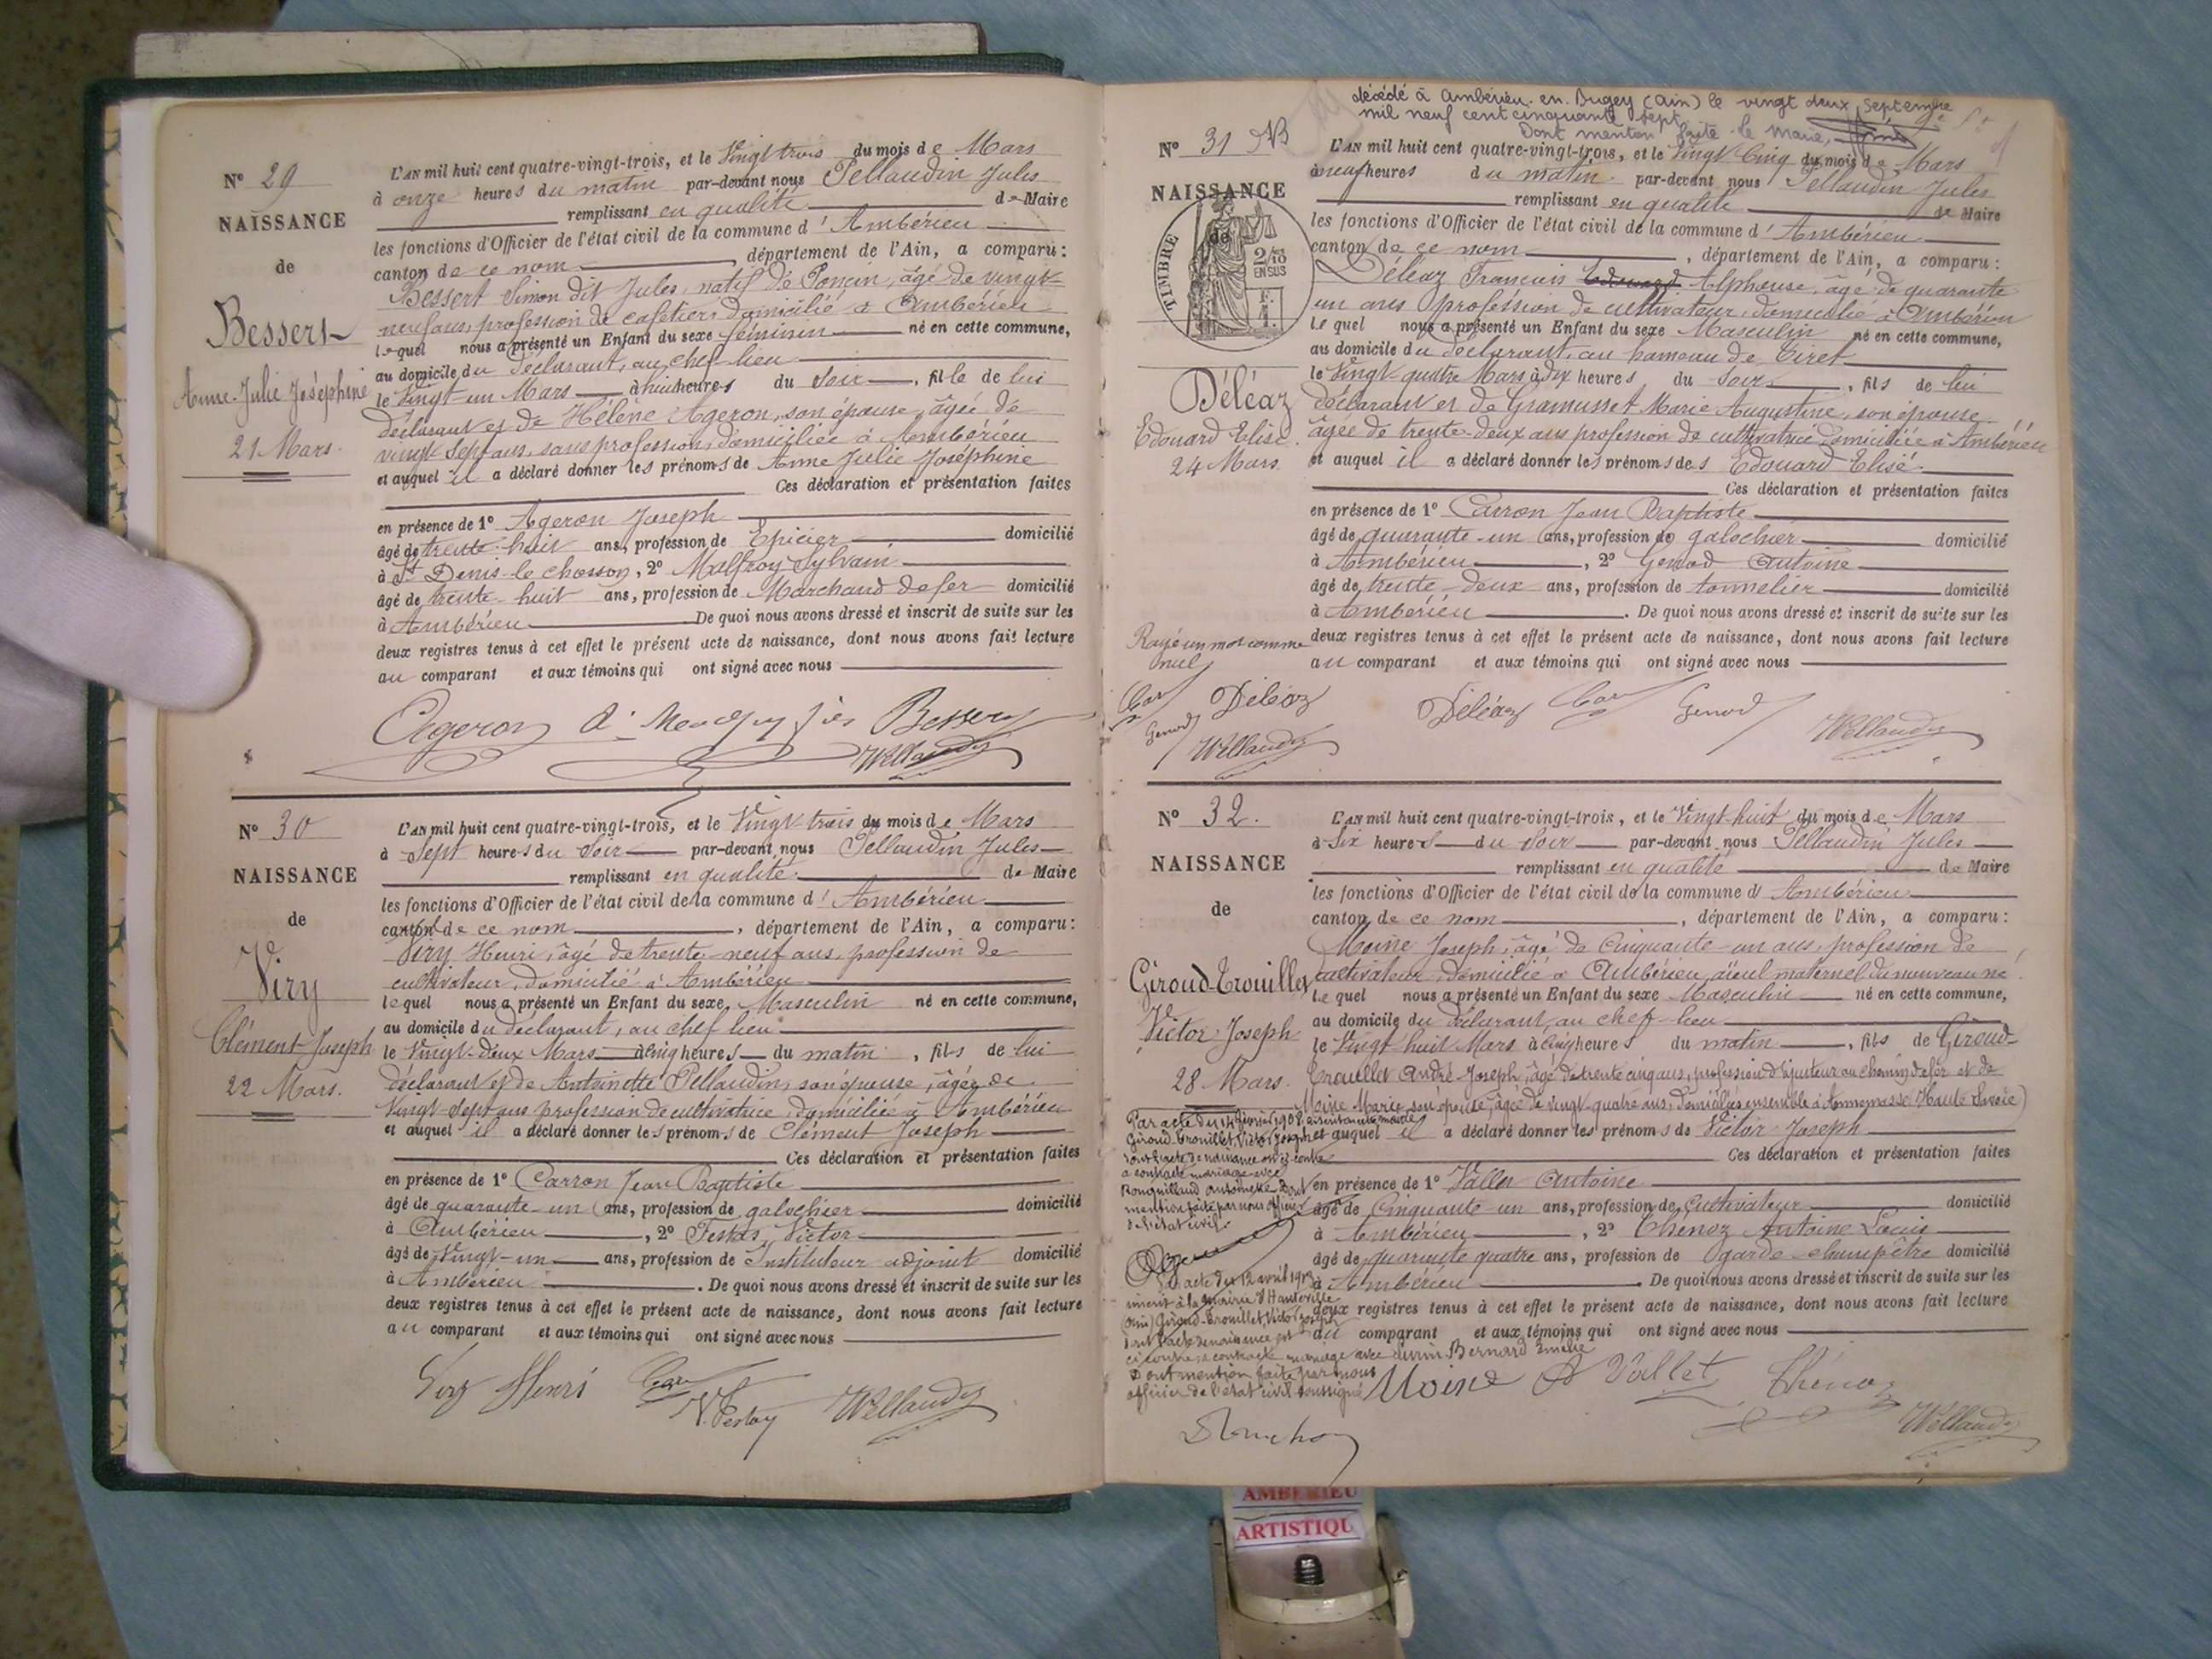 N° 29
NAISSANCE
de
Bessert
Anne-Julie Joséphine
21 Mars.
L'AN mil huit cent quatre-vingt-trois, et le Vingt trois du mois de Mars
à onze heures du matin par-devant nous Pellaudin Jules
remplissant en qualité de Maire
les fonctions d'Officier de l'état civil de la commune d'Ambérieu
canton de ce nom, département de l'Ain, a comparu:
Bessert Simon dit Jules, natif de Poncin, âgé de vingt-
neuf ans, profession de cafetier, domicilié à Ambérieu
lequel nous a présenté un Enfant du sexe féminin né en cette commune,
au domicile du déclarant, au chef-lieu
le Vingt-un Mars à huit heures du Soir, fille de lui
déclarant et de Hélène Ageron, son épouse, âgée de
vingt-sept ans, sans profession, domiciliée à Ambérieu
et auquel il a déclaré donner les prénoms de Anne Julie Joséphine
Ces déclaration et présentation faites
en présence de 1° Ageron Joseph
âgé de trente-huit ans, profession de Epicier domicilié
à St Denis-le-chosson, 2° Malfroy Sylvain
âgé de trente-huit ans, profession de Marchand de fer domicilié
à Ambérieu De quoi nous avons dressé et inscrit de suite sur les
deux registres tenus à cet effet le présent acte de naissance, dont nous avons fait lecture
au comparant et aux témoins qui ont signé avec nous
Ageron Bessert
N° 30
NAISSANCE
de
Viry
Clément-Joseph
22 Mars.
L'AN mil huit cent quatre-vingt-trois, et le Vingt-trois du mois de Mars
à Sept heures du Soir par-devant nous Pellaudin Jules
remplissant en qualité de Maire
les fonctions d'Officier de l'état civil de la commune d'Ambérieu
canton de ce nom, département de l'Ain, a comparu:
Viry Henri, âgé de trente-neuf ans, profession de
cultivateur, domicilié à Ambérieu
lequel nous a présenté un Enfant du sexe Masculin né en cette commune,
au domicile du déclarant, au chef lieu
le Vingt-deux Mars à cinq heures du matin, fils de lui
déclarant et de Antoinette Pellaudin, son épouse, âgée de
Vingt-sept ans profession de cultivatrice, domiciliée à Ambérieu
et auquel il a déclaré donner les prénoms de Clément Joseph
Ces déclaration et présentation faites
en présence de 1° Carron Jean Baptiste
âgé de quarante-un ans, profession de galochier domicilié
à Ambérieu, 2° Testas, Victor
âgé de Vingt-un ans, profession de Instituteur adjoint domicilié
à Ambérieu. De quoi nous avons dressé et inscrit de suite sur les
deux registres tenus à cet effet le présent acte de naissance, dont nous avons fait lecture
au comparant et aux témoins qui ont signé avec nous
Viry Henri
décédé à Ambérieu-en-Bugey (Ain) le vingt deux Septembre
mil neuf cent cinquante sept.
Dont mention faite le Maire,
N° 31
NAISSANCE
de
TIMBRE
2/10
EN SUS
Déléaz
Edouard Elisé.
24 Mars.
Rayé un mot comme
nul
Déléaz
Genod
L'AN mil huit cent quatre-vingt-trois, et le Vingt-Cinq du mois de Mars
à neuf heures du matin par-devant nous Pellaudin Jules
remplissant en qualité de Maire
les fonctions d'Officier de l'état civil de la commune d'Ambérieu
canton de ce nom, département de l'Ain, a comparu:
Déléaz François Edouard Alphonse, âgé de quarante
un ans profession de cultivateur, domicilié à Ambérieu
lequel nous a présenté un Enfant du sexe Masculin né en cette commune,
au domicile du déclarant, au hameau de Tiret
le Vingt-quatre Mars à dix heures du Soir, fils de lui
déclarant et de Gramusset Marie Augustine, son épouse
âgée de trente-deux ans profession de cultivatrice domiciliée à Ambérieu
et auquel il a déclaré donner les prénoms des Edouard Elisé.
Ces déclaration et présentation faites
en présence de 1° Carron Jean Baptiste
âgé de quarante-un ans, profession de galochier domicilié
à Ambérieu, 2° Genod Antoine
âgé de trente-deux ans, profession de tonnelier domicilié
à Ambérieu. De quoi nous avons dressé et inscrit de suite sur les
deux registres tenus à cet effet le présent acte de naissance, dont nous avons fait lecture
au comparant et aux témoins qui ont signé avec nous
Déléaz Genod
N° 32.
NAISSANCE
de
Giroud-Trouillet
Victor-Joseph
28 Mars.
L'AN mil huit cent quatre-vingt-trois, et le Vingt-huit du mois de Mars
à Six heures du Soir par-devant nous Pellaudin Jules
remplissant en qualité de Maire
les fonctions d'Officier de l'état civil de la commune d'Ambérieu
canton de ce nom, département de l'Ain, a comparu:
Moine Joseph, âgé de Cinquante-un ans, profession de
cultivateur, domicilié à Ambérieu, aïeul maternel du nouveau né
lequel nous a présenté un Enfant du sexe Masculin né en cette commune,
au domicile du déclarant, au chef-lieu
le Vingt-huit Mars à cinq heures du matin, fils de Giroud-
Trouillet André-Joseph, âgé de trente cinq ans, profession d'ajusteur au chemin de fer et de
Moine Marie, son épouse, âgée de vingt-quatre ans, domiciliés ensemble à Annemasse (Haute Savoie)
et auquel il a déclaré donner les prénoms de Victor Joseph
Ces déclaration et présentation faites
en présence de 1° Vallet Antoine
âgé de Cinquante-un ans, profession de Cultivateur domicilié
à Ambérieu, 2° Thénoz Antoine Louis
âgé de quarante quatre ans, profession de garde-champêtre domicilié
à Ambérieu. De quoi nous avons dressé et inscrit de suite sur les
deux registres tenus à cet effet le présent acte de naissance, dont nous avons fait lecture
du comparant et aux témoins qui ont signé avec nous
Par acte du 14 février 1908
Giroud-Trouillet, Victor Joseph
dont l'acte de naissance est ci-contre
a contracté mariage avec
Antoinette Dont
mention faite par nous officier
de l'état civil.
acte du 12 avril
inscrit à la mairie d'Hauteville
(Ain) Giroud-Trouillet, Victor Joseph
dont l'acte de naissance est
ci contre, a contracté mariage avec Bernard Emélie
Dont mention faite par nous
officier de l'état civil soussigné
Moine A Vallet Thénoz
AMBERIEU
ARTISTIQU